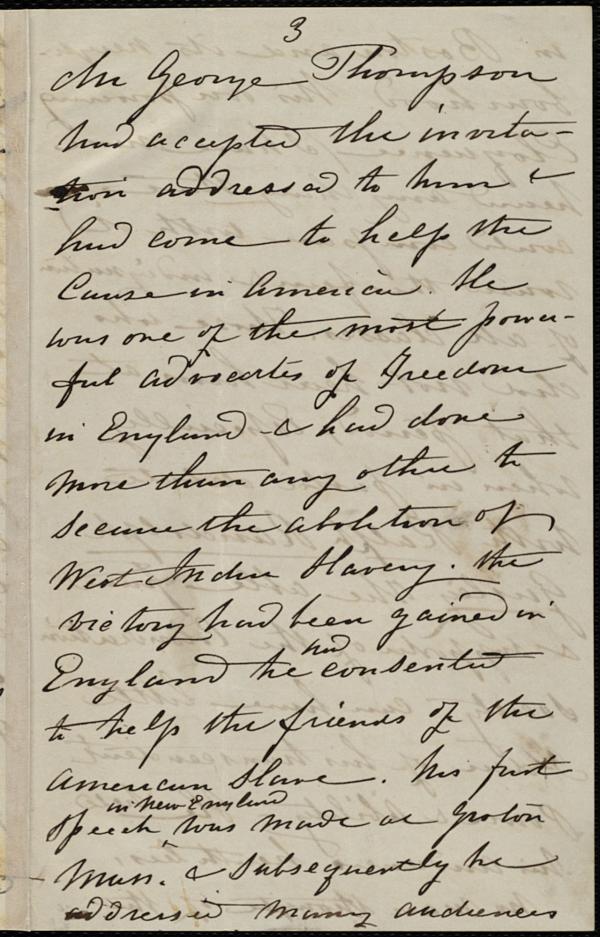 3
Mr George Thompson
had accepted the invita-
tion addressed to him &
had come to help the
Cause in America. He
was one of the most power-
ful advocates of Freedom
in England & had done
more than any other to
secure the abolition of
West India Slavery. the
victory had been gained in
England he had consented
to help the friends of the
American Slave. His first
speech in New England was made at Groton
Mass. & subsequently he
addressed many audiences